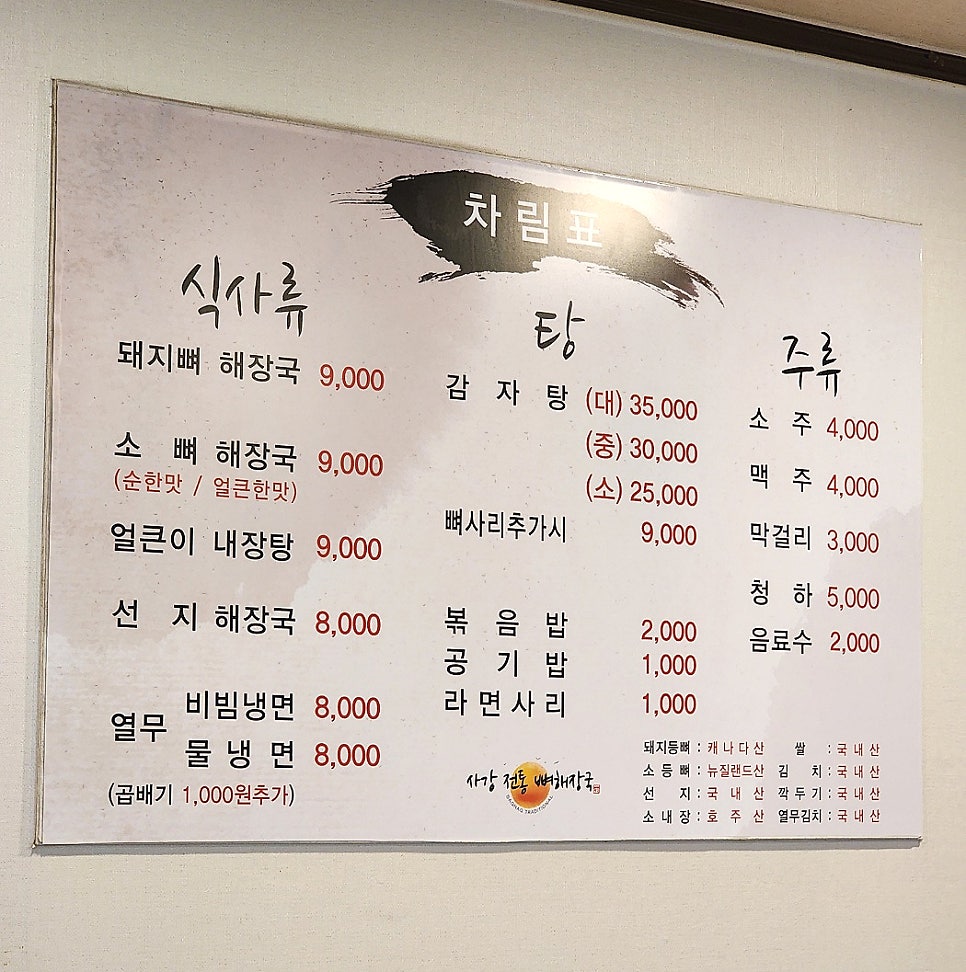 차림표
식사류
돼지뼈 해장국 9,000
소 뼈 해장국 9,000
(순한맛 / 얼큰한맛)
얼큰이 내장탕 9,000
선 지 해장국 8,000
열무
비빔냉면 8,000
물 냉 면 8,000
(곱배기 1,000원추가)
탕
감 자 탕 (대) 35,000
(중) 30,000
(소) 25,000
뼈사리추가시 9,000
볶 음 밥 2,000
공 기 밥 1,000
라 면 사 리 1,000
주류
소 주 4,000
맥 주 4,000
막걸리 3,000
청 하 5,000
음료수 2,000
돼지등뼈 : 캐 나 다 산 쌀 : 국 내 산
소 등 뼈 : 뉴질랜드산 김 치 : 국 내 산
선 지 : 국 내 산 깍 두 기 : 국 내 산
소 내 장 : 호 주 산 열무김치 : 국 내 산
사강 전통 뼈해장국